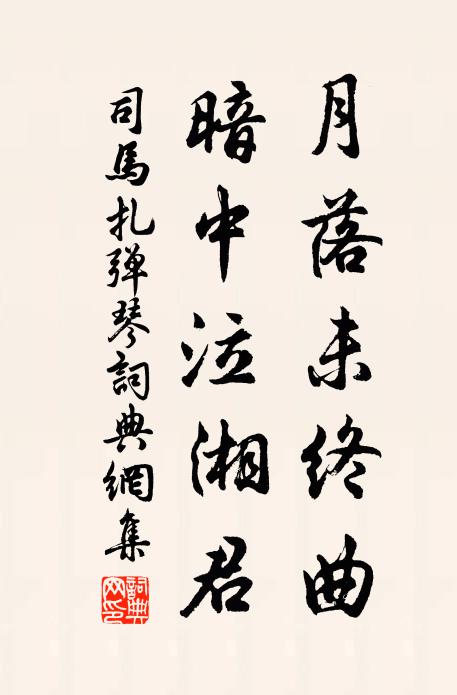 月落未終曲
暗中泣湘君
司馬扎彈琴詞典網集
詞典網印